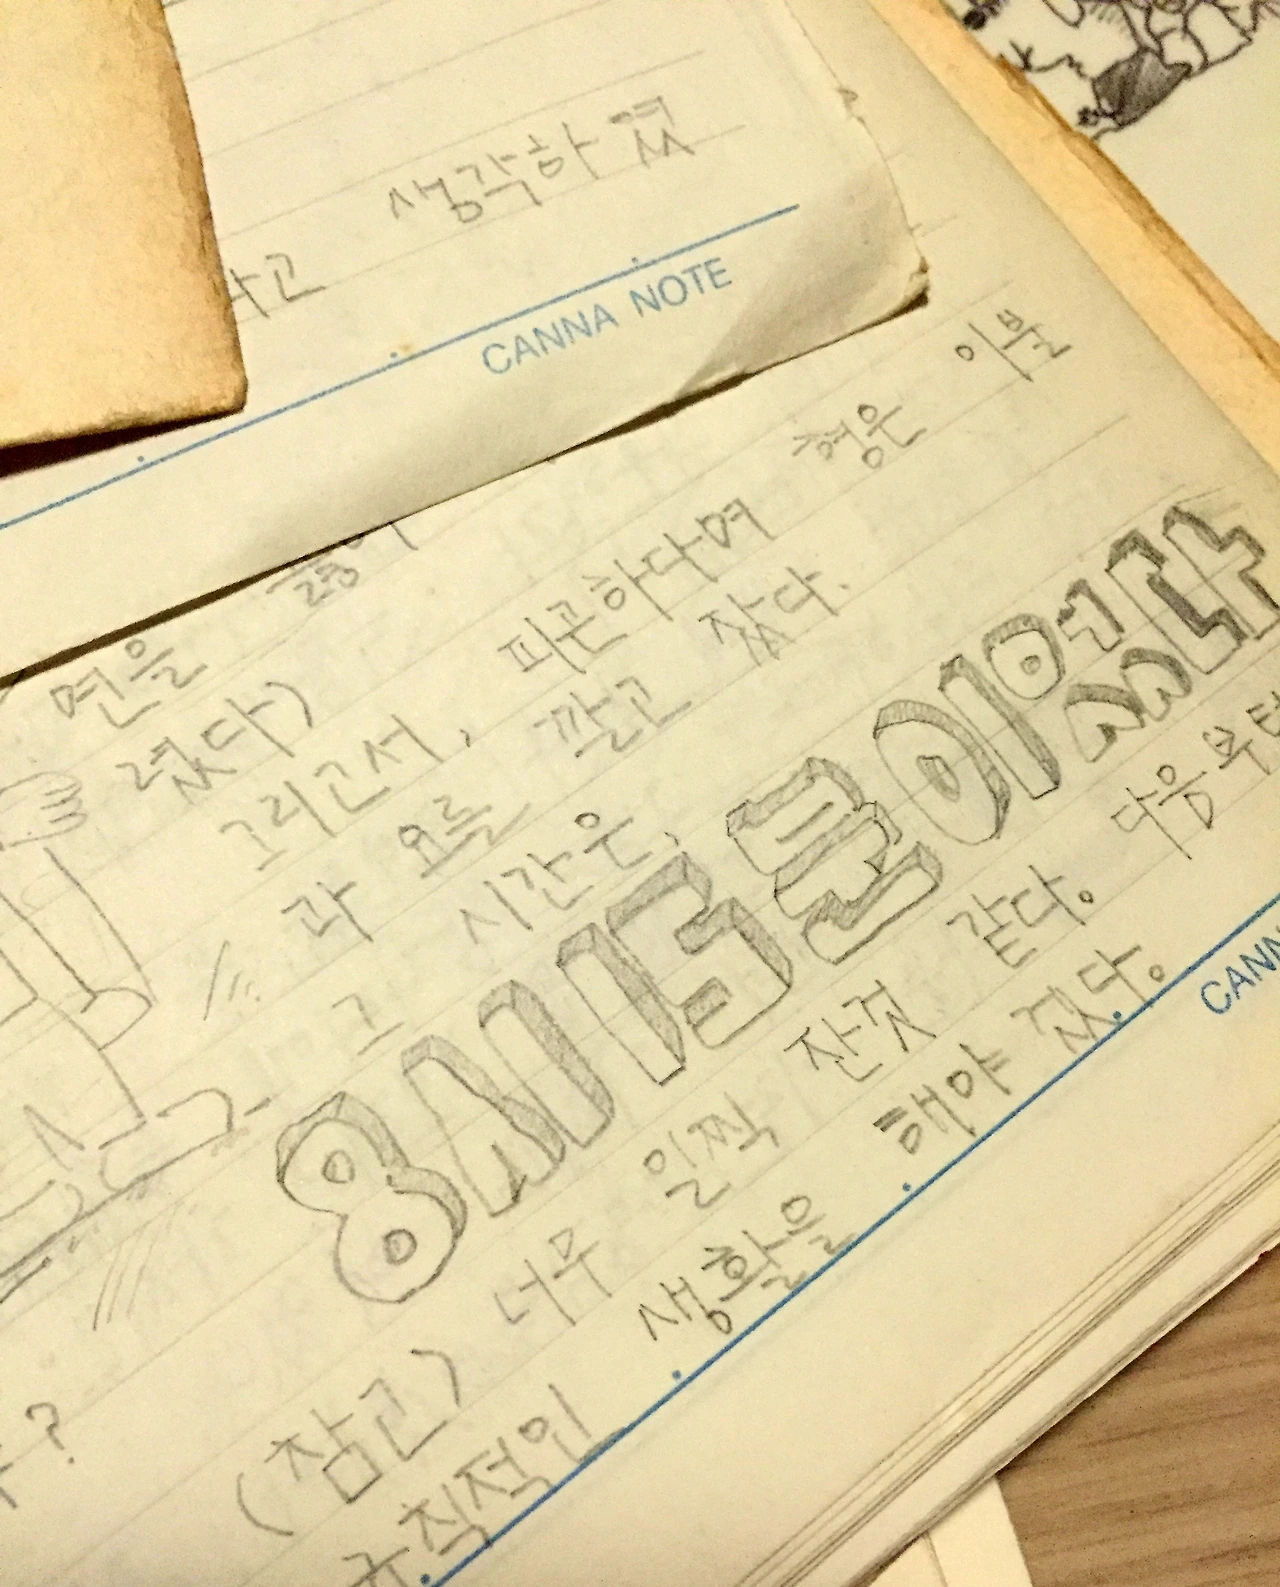 생각하 였
고
CANNA NOTE
연을
렸다)
그리고서, 피곤하다며 형은 이불
과 요를 깔고 잤다.
그 시간은,
8시더들이었다
(참고) 너무 일찍 잔것 같다. 다음부터
규칙적인 생활을 해야 겠다.
CANN
?